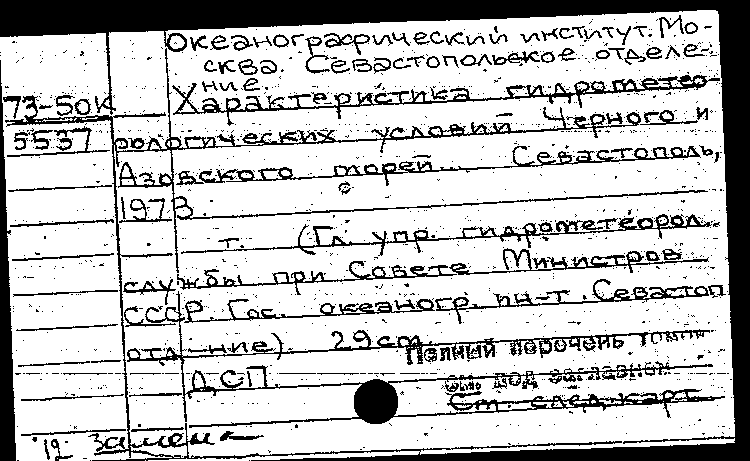 Океанографический институт. Мо-
сква. Севастопольское отделе-
ние.
73-50К Характеристика гидрометео-
5537 рологических условий Черного и
Азовского морей... Севастополь,
1973.
т. (Гл. упр. гидрометеорол.
службы при Совете Министров
СССР. Гос. океаногр. ин-т. Севастоп
отд-ние). 29 см.
Полный перечень томов
см. под заглавием
ДСП
См. след. карт.
12 Замена